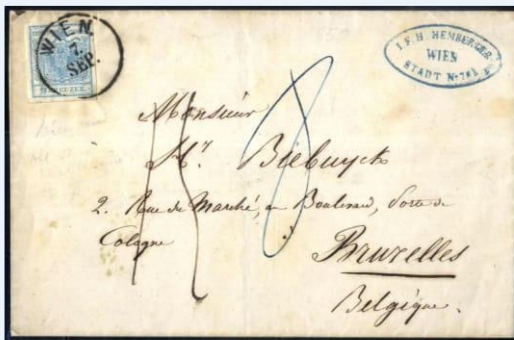 WIEN
7.
SEP.
KREUZER
I.F.H. HEMBERGER
WIEN
STADT No
Monsieur
Mr. Biebuyck
2. Rue du Marché, au Boulevard, Porte de
Cologne
8
Bruxelles
Belgique.